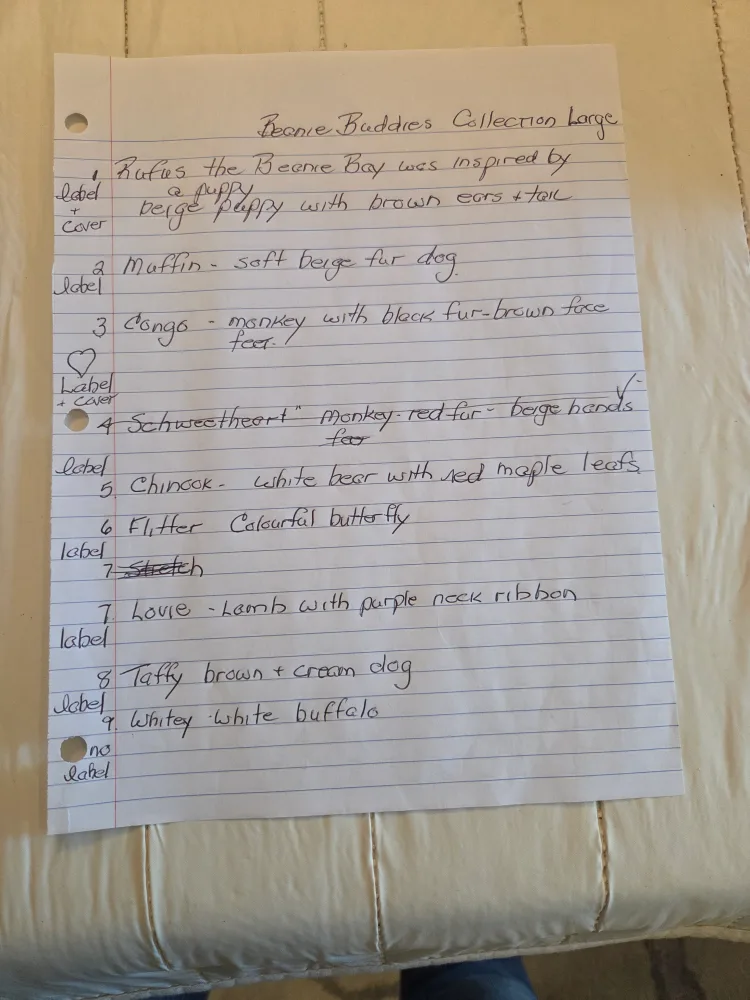 Beanie Buddies Collection Large
1 Rufus the Beanie Bay was inspired by
a puppy
label
+
cover
beige puppy with brown ears + tail
2 Muffin - soft beige fur dog.
label
3 Congo - monkey with black fur - brown face
feet.
Label
+ cover
4 Schweetheart" monkey - red fur - beige hands
feet
label
5. Chinook - white bear with red maple leafs
6 Flitter Colourful butterfly
label
7 Stretch
7. Lovie - Lamb with purple neck ribbon
label
8 Taffy brown + cream dog
label
9. Whitey - white buffalo
no
label